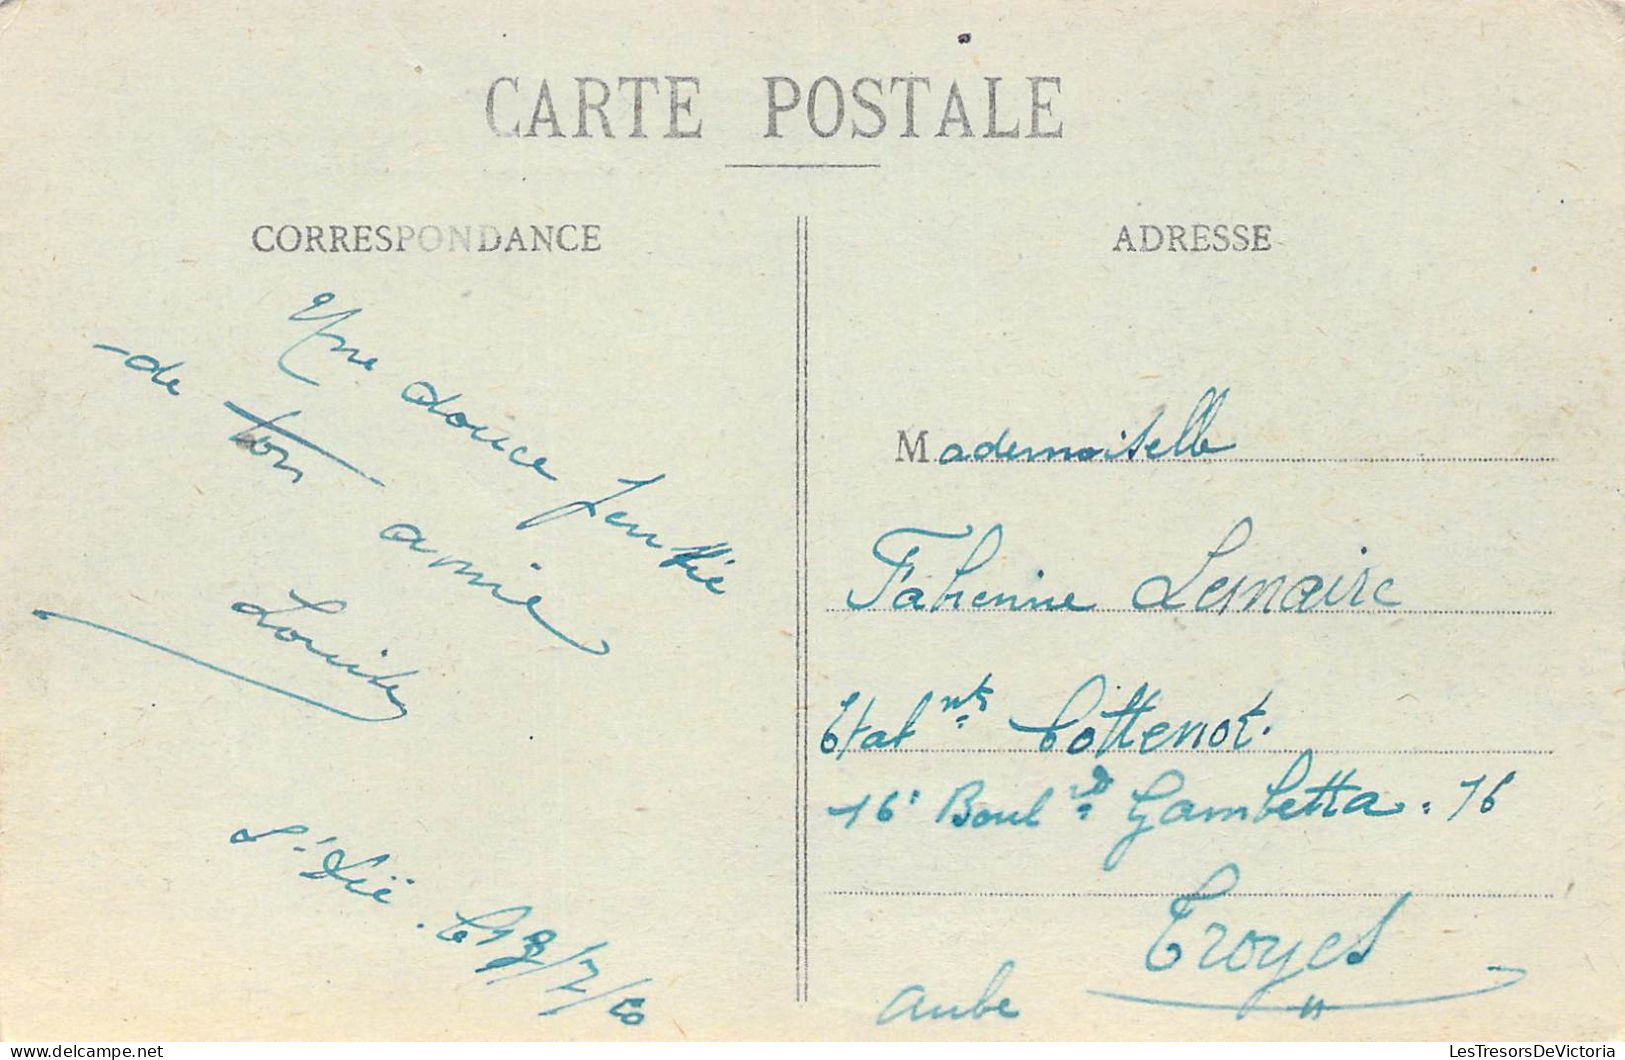 CARTE POSTALE
CORRESPONDANCE
Une douce pensée
de ton amie
St Dié
ADRESSE
Mademoiselle
Fabienne Lemaire
Etabnts Cottenot.
16 Boulvd Gambetta. 16
Troyes
Aube
LesTresorsDeVictoria